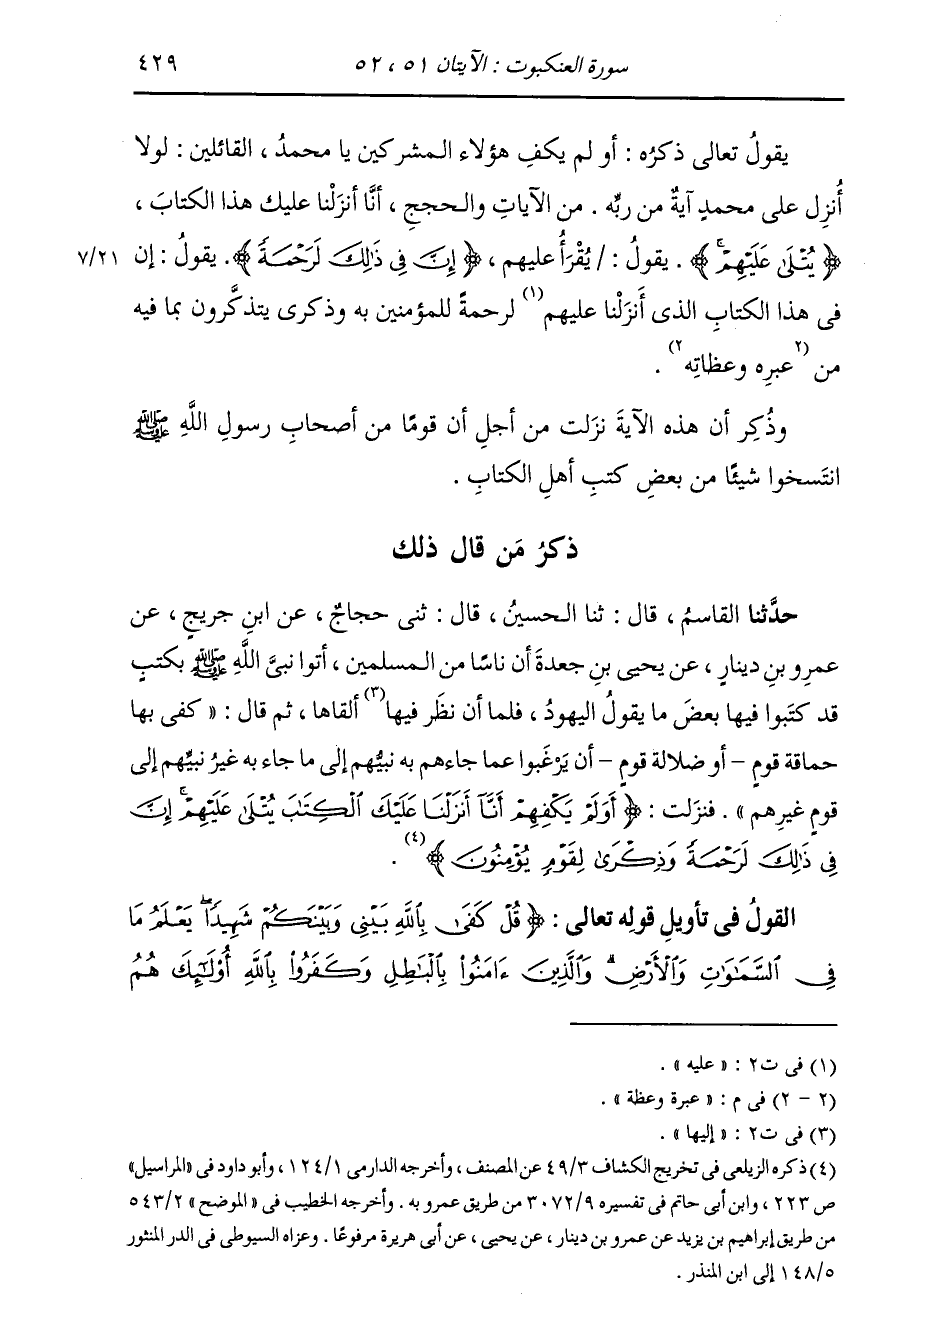 سورة العنكبوت : الآيتان ٥١ ، ٥٢ ٤٢٩
يقولُ تعالى ذكرُه : أو لم يكفِ هؤلاء المشركين يا محمدُ ، القائلين : لولا
أُنزِل على محمدٍ آيةٌ من ربِّه . من الآياتِ والحججِ ، أنَّا أنزَلْنا عليك هذا الكتابَ ،
﴿ يُتْلَىٰ عَلَيْهِمْۚ ﴾ . يقولُ : / يُقْرَأُ عليهم ، ﴿ إِنَّ فِى ذَٰلِكَ لَرَحْمَةً ﴾ . يقولُ : إن ٧/٢١
فى هذا الكتابِ الذى أَنزَلْنا عليهم(١) لرحمةً للمؤمنين به وذكرى يتذكَّرون بما فيه
من (٢عبرِه وعظاتِه٢) .
وذُكِر أن هذه الآيةَ نزَلت من أجلِ أن قومًا من أصحابِ رسولِ اللَّهِ ﷺ
انتَسخوا شيئًا من بعضِ كتبِ أهلِ الكتابِ .
ذكرُ مَن قال ذلك
حدَّثنا القاسمُ ، قال : ثنا الحسينُ ، قال : ثنى حجاجٌ ، عن ابنِ جريجٍ ، عن
عمرِو بنِ دينارٍ ، عن يحيى بنِ جعدةَ أن ناسًا من المسلمين ، أتوا نبىَّ اللَّهِ ﷺ بكتبٍ
قد كتَبوا فيها بعضَ ما يقولُ اليهودُ ، فلما أن نظَر فيها(٣) ألقاها ، ثم قال : « كفى بها
حماقة قومٍ – أو ضلالة قومٍ – أن يَرْغَبوا عما جاءهم به نبيُّهم إلى ما جاء به غيرُ نبيِّهم إلى
قومٍ غيرِهم » . فنزلت : ﴿ أَوَلَمْ يَكْفِهِمْ أَنَّآ أَنزَلْنَا عَلَيْكَ ٱلْكِتَٰبَ يُتْلَىٰ عَلَيْهِمْۚ إِنَّ
فِى ذَٰلِكَ لَرَحْمَةً وَذِكْرَىٰ لِقَوْمٍ يُؤْمِنُونَ ﴾(٤) .
القولُ فى تأويلِ قولِه تعالى : ﴿ قُلْ كَفَىٰ بِٱللَّهِ بَيْنِى وَبَيْنَكُمْ شَهِيدًاۖ يَعْلَمُ مَا
فِى ٱلسَّمَٰوَٰتِ وَٱلْأَرْضِۗ وَٱلَّذِينَ ءَامَنُوا۟ بِٱلْبَٰطِلِ وَكَفَرُوا۟ بِٱللَّهِ أُو۟لَٰٓئِكَ هُمُ
(١) فى ت٢ : « عليه » .
(٢ – ٢) فى م : « عبرة وعظة » .
(٣) فى ت٢ : « إليها » .
(٤) ذكره الزيلعى فى تخريج الكشاف ٤٩/٣ عن المصنف ، وأخرجه الدارمى ١٢٤/١ ، وأبو داود فى «المراسيل»
ص ٢٢٣ ، وابن أبى حاتم فى تفسيره ٣٠٧٢/٩ من طريق عمرو به . وأخرجه الخطيب فى « الموضح » ٥٤٣/٢
من طريق إبراهيم بن يزيد عن عمرو بن دينار ، عن يحيى ، عن أبى هريرة مرفوعًا . وعزاه السيوطى فى الدر المنثور
١٤٨/٥ إلى ابن المنذر .